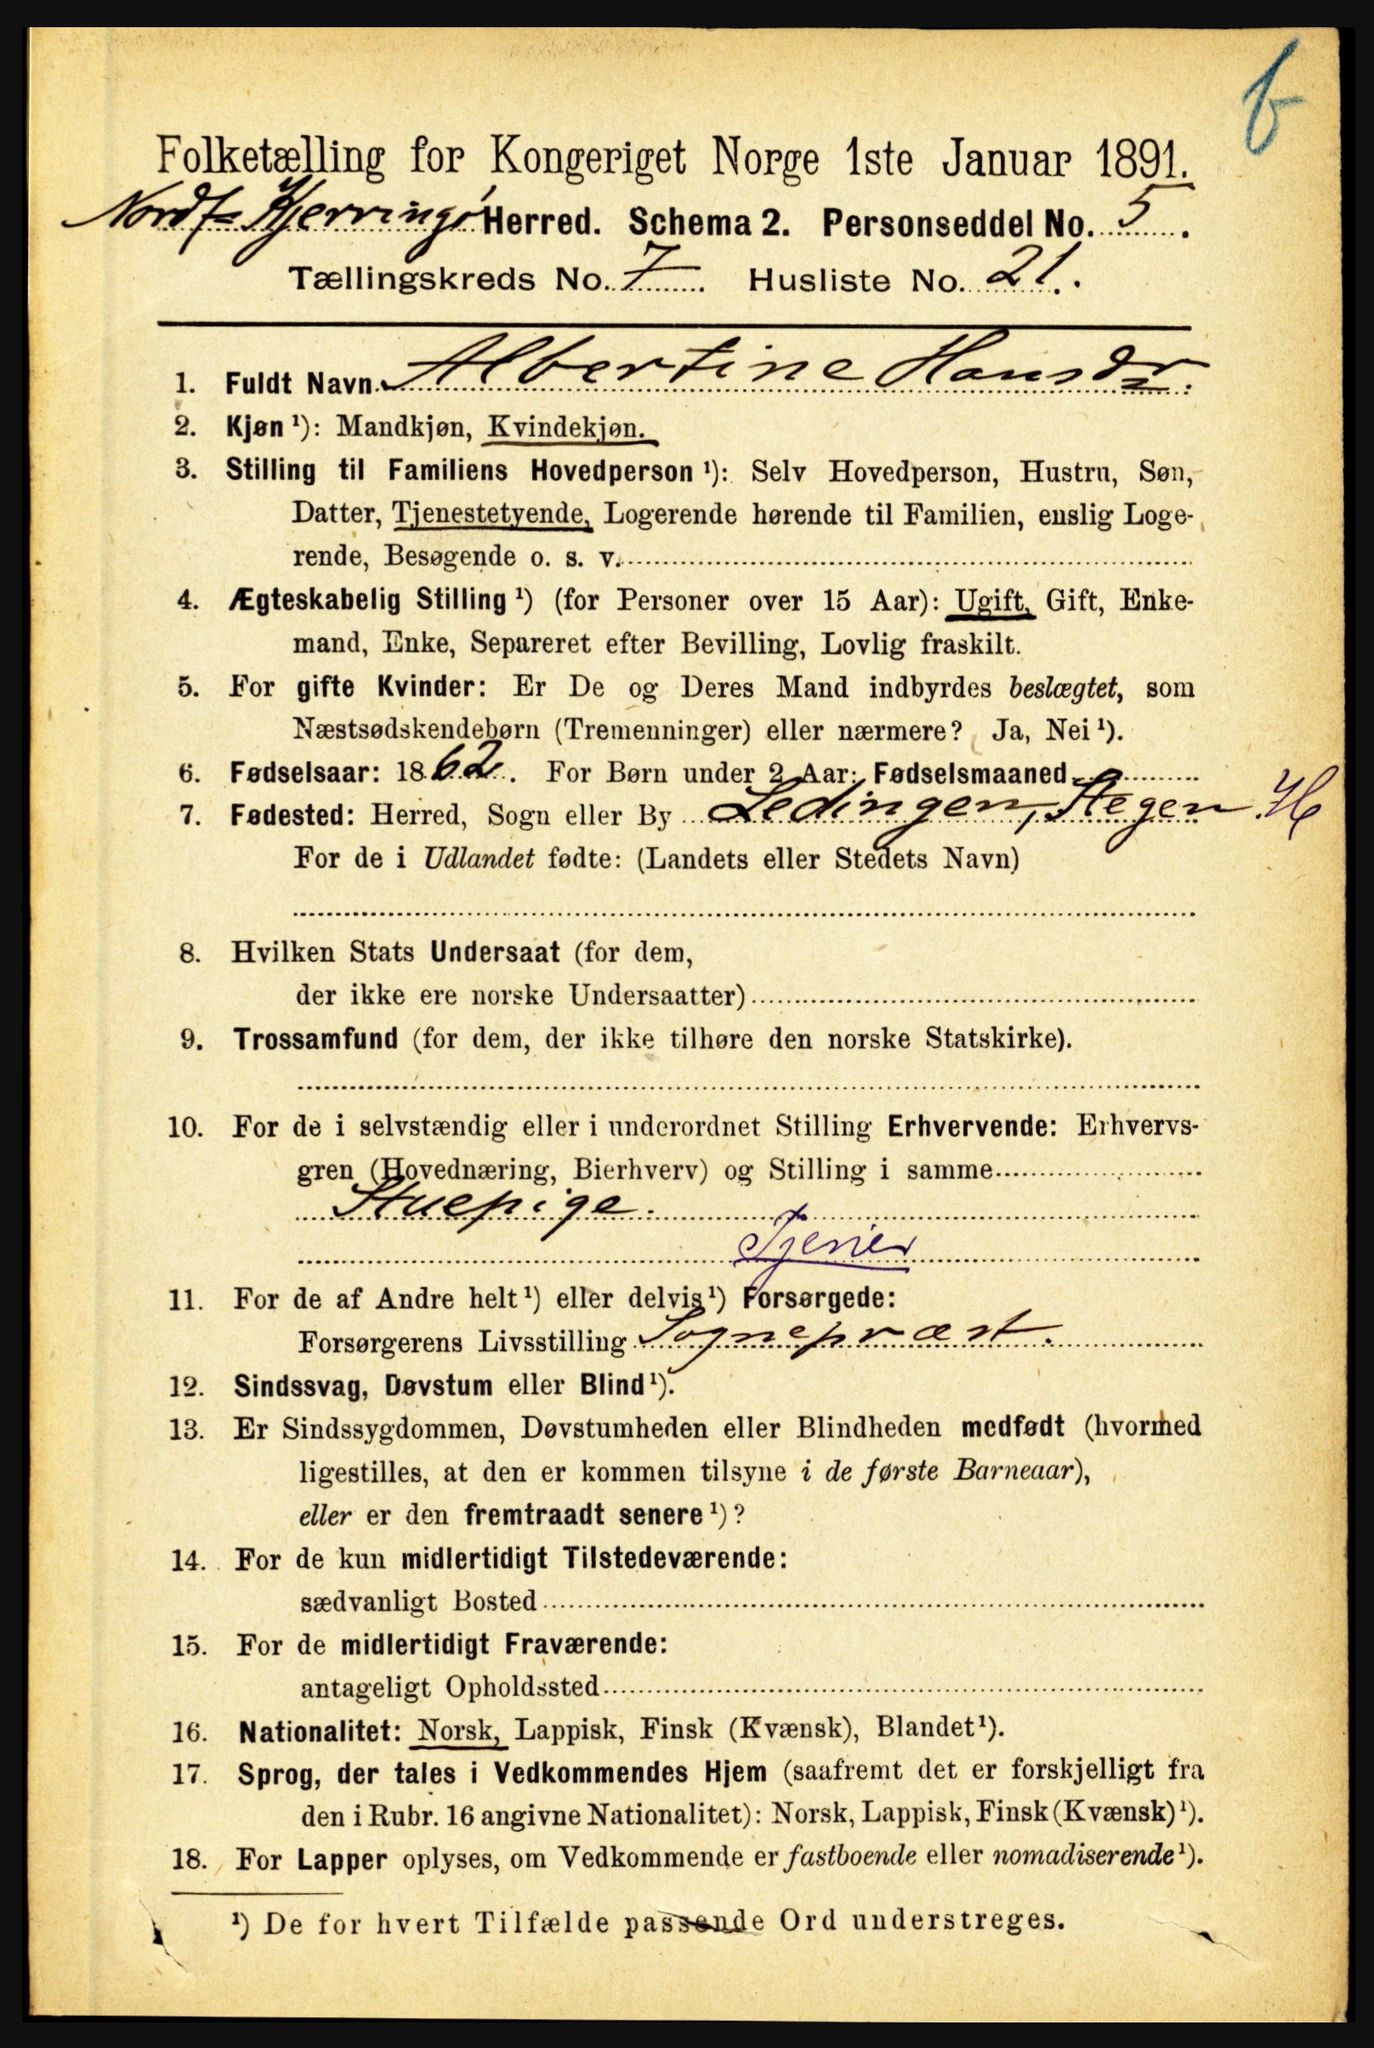 b
Folketælling for Kongeriget Norge 1ste Januar 1891.
Nordf- Kjerringø Herred. Schema 2. Personseddel No. 5.
Tællingskreds No. 7. Husliste No. 21.
1. Fuldt Navn. Albertine Hansdr.
2. Kjøn ¹): Mandkjøn, Kvindekjøn.
3. Stilling til Familiens Hovedperson ¹): Selv Hovedperson, Hustru, Søn,
Datter, Tjenestetyende, Logerende hørende til Familien, enslig Loge-
rende, Besøgende o. s. v.
4. Ægteskabelig Stilling ¹) (for Personer over 15 Aar): Ugift, Gift, Enke-
mand, Enke, Separeret efter Bevilling, Lovlig fraskilt.
5. For gifte Kvinder: Er De og Deres Mand indbyrdes beslægtet, som
Næstsødskendebørn (Tremenninger) eller nærmere? Ja, Nei ¹).
6. Fødselsaar: 1862. For Børn under 2 Aar: Fødselsmaaned
7. Fødested: Herred, Sogn eller By Ledingen, Stegen H
For de i Udlandet fødte: (Landets eller Stedets Navn)
8. Hvilken Stats Undersaat (for dem,
der ikke ere norske Undersaatter)
9. Trossamfund (for dem, der ikke tilhøre den norske Statskirke).
10. For de i selvstændig eller i underordnet Stilling Erhvervende: Erhvervs-
gren (Hovednæring, Bierhverv) og Stilling i samme
Stuepige.
Tjener
11. For de af Andre helt ¹) eller delvis ¹) Forsørgede:
Forsørgerens Livsstilling Sognepræst.
12. Sindssvag, Døvstum eller Blind ¹).
13. Er Sindssygdommen, Døvstumheden eller Blindheden medfødt (hvormed
ligestilles, at den er kommen tilsyne i de første Barneaar),
eller er den fremtraadt senere ¹)?
14. For de kun midlertidigt Tilstedeværende:
sædvanligt Bosted
15. For de midlertidigt Fraværende:
antageligt Opholdssted
16. Nationalitet: Norsk, Lappisk, Finsk (Kvænsk), Blandet ¹).
17. Sprog, der tales i Vedkommendes Hjem (saafremt det er forskjelligt fra
den i Rubr. 16 angivne Nationalitet): Norsk, Lappisk, Finsk (Kvænsk) ¹).
18. For Lapper oplyses, om Vedkommende er fastboende eller nomadiserende ¹).
¹) De for hvert Tilfælde passende Ord understreges.